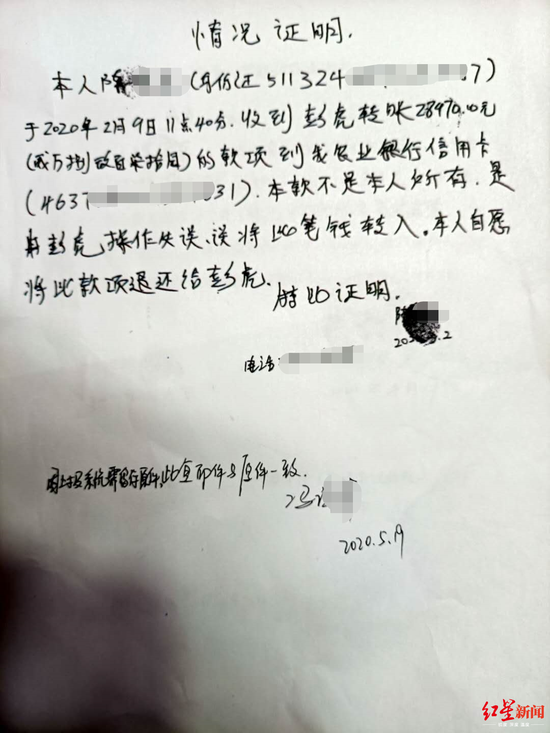 情况证明.
本人陈 (身份证511324 7)
于2020年2月9日11点40分.收到彭虎转账28970.00元
(贰万捌 玖百柒拾元)的款项到我农业银行信用卡
(4637 031).本款不是本人所有.是
彭虎操作失误、误将此笔钱转入。本人自愿
将此款项退还给彭虎、
特此证明.
陈
202 .2
电话:
系统 此复印件与原件一致.
冯
2020.5.19
红星新闻